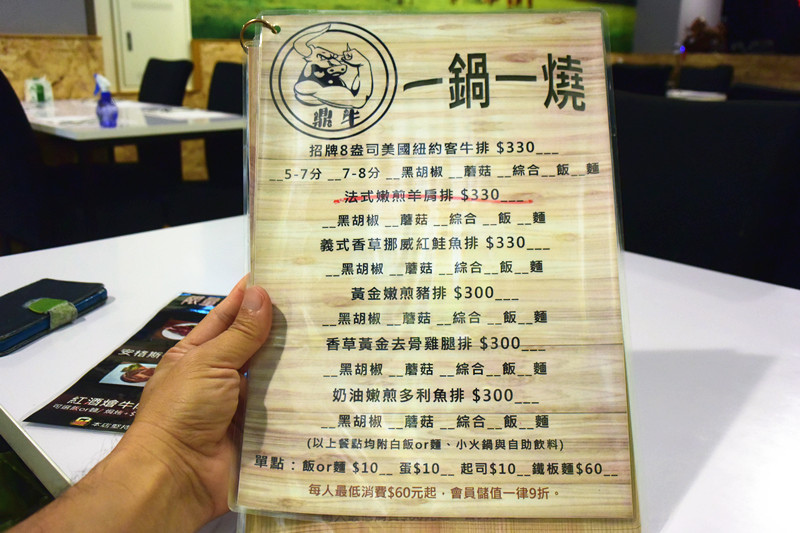 鼎牛
一鍋一燒
招牌8盎司美國紐約客牛排 $330___
__5-7分 __7-8分 __黑胡椒 __蘑菇 __綜合__飯__麵
法式嫩煎羊肩排 $330___
__黑胡椒 __蘑菇 __綜合__飯__麵
義式香草挪威紅鮭魚排 $330___
__黑胡椒 __蘑菇 __綜合__飯__麵
黃金嫩煎豬排 $300___
__黑胡椒 __蘑菇 __綜合 __飯__麵
香草黃金去骨雞腿排 $300___
__黑胡椒 __蘑菇 __綜合__飯__麵
奶油嫩煎多利魚排 $300___
__黑胡椒 __蘑菇 __綜合__飯__麵
(以上餐點均附白飯or麵、小火鍋與自助飲料)
單點：飯or麵 $10__ 蛋$10__ 起司$10__鐵板麵$60__
每人最低消費$60元起，會員儲值一律9折。
安格斯
紅酒燴牛